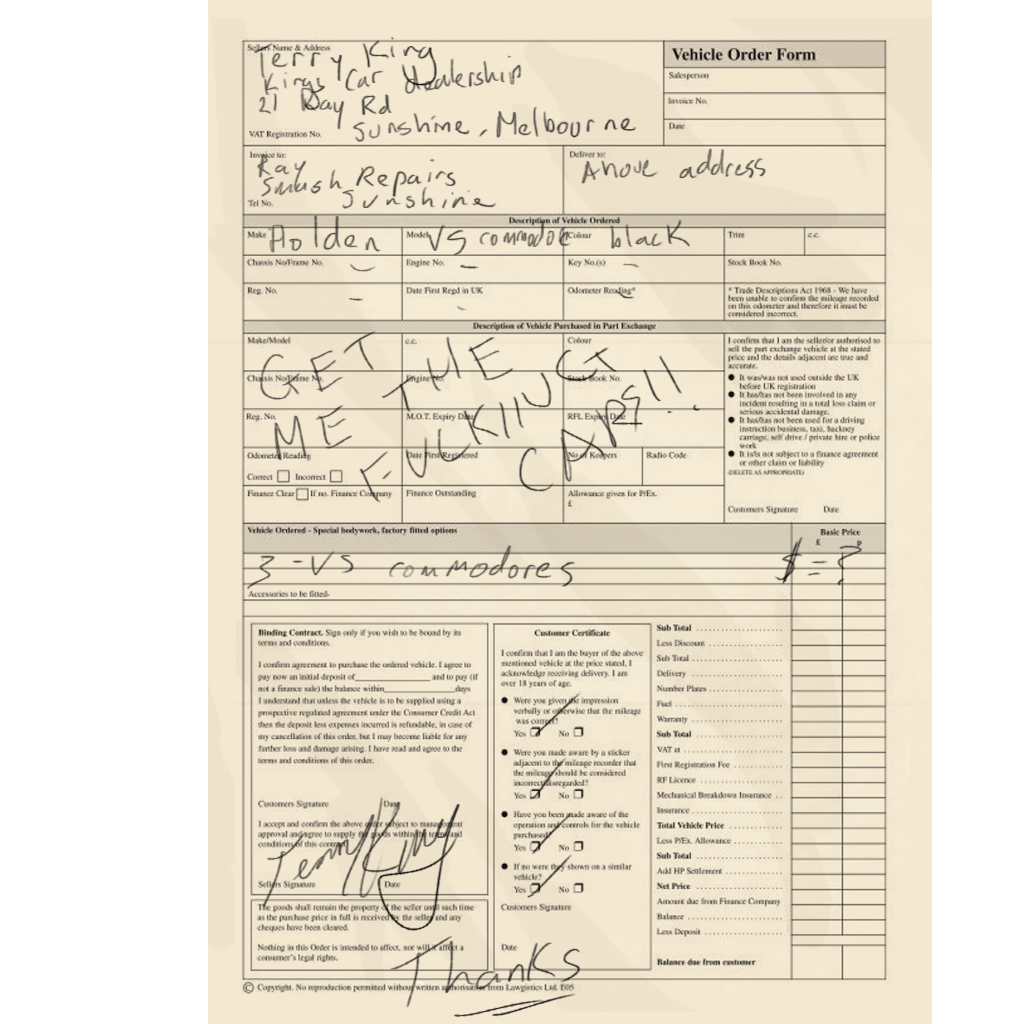 Sellers Name & Address
Terry King
Kings Car dealership
21 Day Rd
Sunshine, Melbourne
VAT Registration No.
Vehicle Order Form
Salesperson
Invoice No.
Date
Invoice to:
Ray
Smash Repairs
Sunshine
Tel No.
Deliver to:
Above address
Description of Vehicle Ordered
Make Holden Model VS commodore Colour black Trim c.c.
Chassis No/Frame No. - Engine No. - Key No.(s) - Stock Book No.
Reg. No. - Date First Regd in UK - Odometer Reading* -
* Trade Descriptions Act 1968 - We have
been unable to confirm the mileage recorded
on this odometer and therefore it must be
considered incorrect.
Description of Vehicle Purchased in Part Exchange
Make/Model c.c. Colour
Chassis No/Frame No. Engine No. Stock Book No.
Reg. No. M.O.T. Expiry Date RFL Expiry Date
Odometer Reading Date First Registered No of Keepers Radio Code
Correct Incorrect
Finance Clear If no. Finance Company Finance Outstanding Allowance given for P/Ex.
£
GET THE
ME
CARS!!
I confirm that I am the seller/or authorised to
sell the part exchange vehicle at the stated
price and the details adjacent are true and
accurate.
● It was/was not used outside the UK
before UK registration
● It has/has not been involved in any
incident resulting in a total loss claim or
serious accidental damage.
● It has/has not been used for a driving
instruction business, taxi, hackney
carriage, self drive / private hire or police
work
● It is/is not subject to a finance agreement
or other claim or liability
(DELETE AS APPROPRIATE)
Customers Signature Date
Vehicle Ordered - Special bodywork, factory fitted options Basic Price
£ p
3 - VS commodores $ = ?
Accessories to be fitted-
Binding Contract. Sign only if you wish to be bound by its
terms and conditions.
I confirm agreement to purchase the ordered vehicle. I agree to
pay now an initial deposit of________________ and to pay (if
not a finance sale) the balance within________________days
I understand that unless the vehicle is to be supplied using a
prospective regulated agreement under the Consumer Credit Act
then the deposit less expenses incurred is refundable, in case of
my cancellation of this order, but I may become liable for any
further loss and damage arising. I have read and agree to the
terms and conditions of this order.
Customers Signature Date
I accept and confirm the above order subject to management
approval and agree to supply the goods within the terms and
conditions of this contract
Terry King
Sellers Signature Date
The goods shall remain the property of the seller until such time
as the purchase price in full is received by the seller and any
cheques have been cleared.
Nothing in this Order is intended to affect, nor will it affect a
consumer's legal rights.
Customer Certificate
I confirm that I am the buyer of the above
mentioned vehicle at the price stated, I
acknowledge receiving delivery. I am
over 18 years of age.
● Were you given the impression
verbally or otherwise that the mileage
was correct?
Yes No
● Were you made aware by a sticker
adjacent to the mileage recorder that
the mileage should be considered
incorrect/disregarded?
Yes No
● Have you been made aware of the
operation and controls for the vehicle
purchased?
Yes No
● If no were they shown on a similar
vehicle?
Yes No
Customers Signature
Date
Thanks
Sub Total
Less Discount
Sub Total
Delivery
Number Plates
Fuel
Warranty
Sub Total
VAT at
First Registration Fee
RF Licence
Mechanical Breakdown Insurance
Insurance
Total Vehicle Price
Less P/Ex. Allowance
Sub Total
Add HP Settlement
Net Price
Amount due from Finance Company
Balance
Less Deposit
Balance due from customer
© Copyright. No reproduction permitted without written authorisation from Lawgistics Ltd. E05